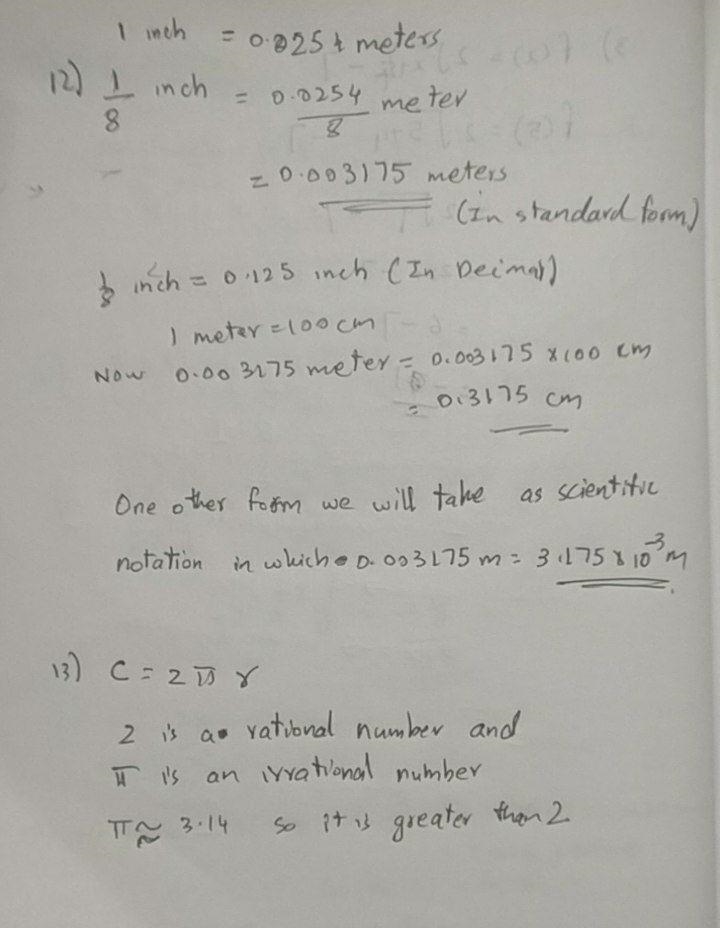 1 inch = 0.0254 meters
12) 1/8 inch = 0.0254/8 meter
= 0.003175 meters
(In standard form)
1/8 inch = 0.125 inch (In Decimal)
1 meter = 100 cm
Now 0.003175 meter = 0.003175 x 100 cm
= 0.3175 cm
One other form we will take as scientific
notation in which 0.003175 m = 3.175 x 10⁻³ m
13) C = 2 π r
2 is a rational number and
π is an irrational number
π ≈ 3.14 so it is greater than 2